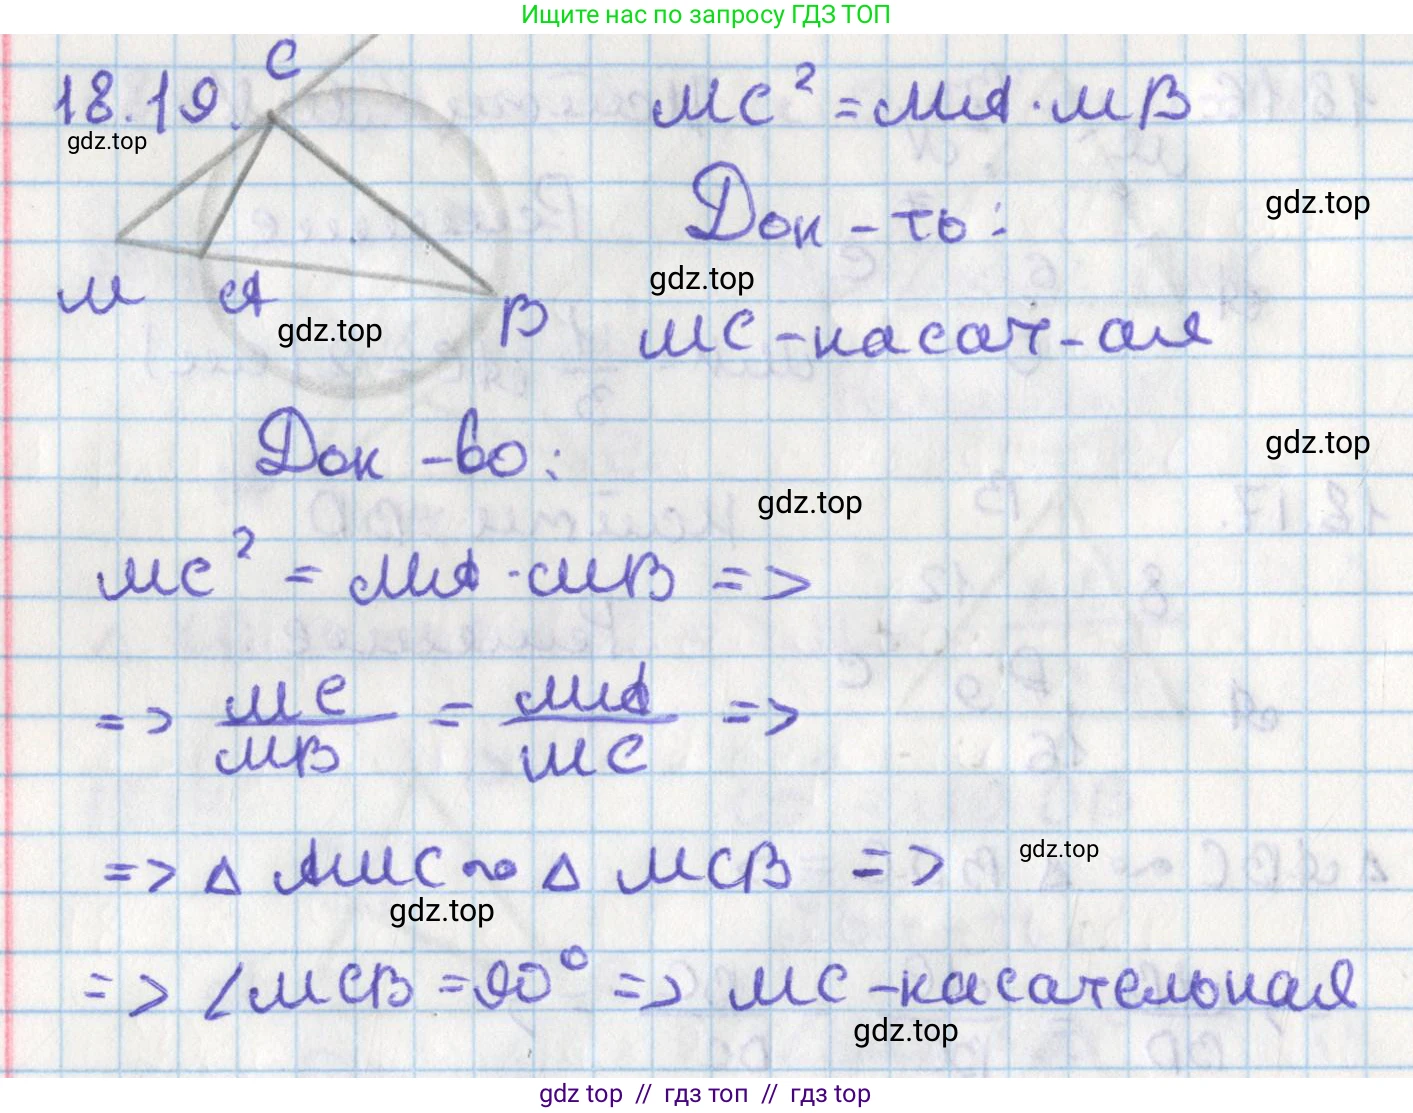 Ищите нас по запросу ГДЗ ТОП
C
18.19.
MC² = MA · MB
gdz.top
gdz.top
Док-ть:
gdz.top
M A B
gdz.top
MC - касат-ая
Док-во:
gdz.top
gdz.top
MC² = MA · MB =>
=> MC/MB = MA/MC =>
gdz.top
=> △ AMC ~ △ MCB =>
gdz.top
=> ∠MCB = 90° => MC - касательная
gdz.top
gdz top // гдз топ // гдз top